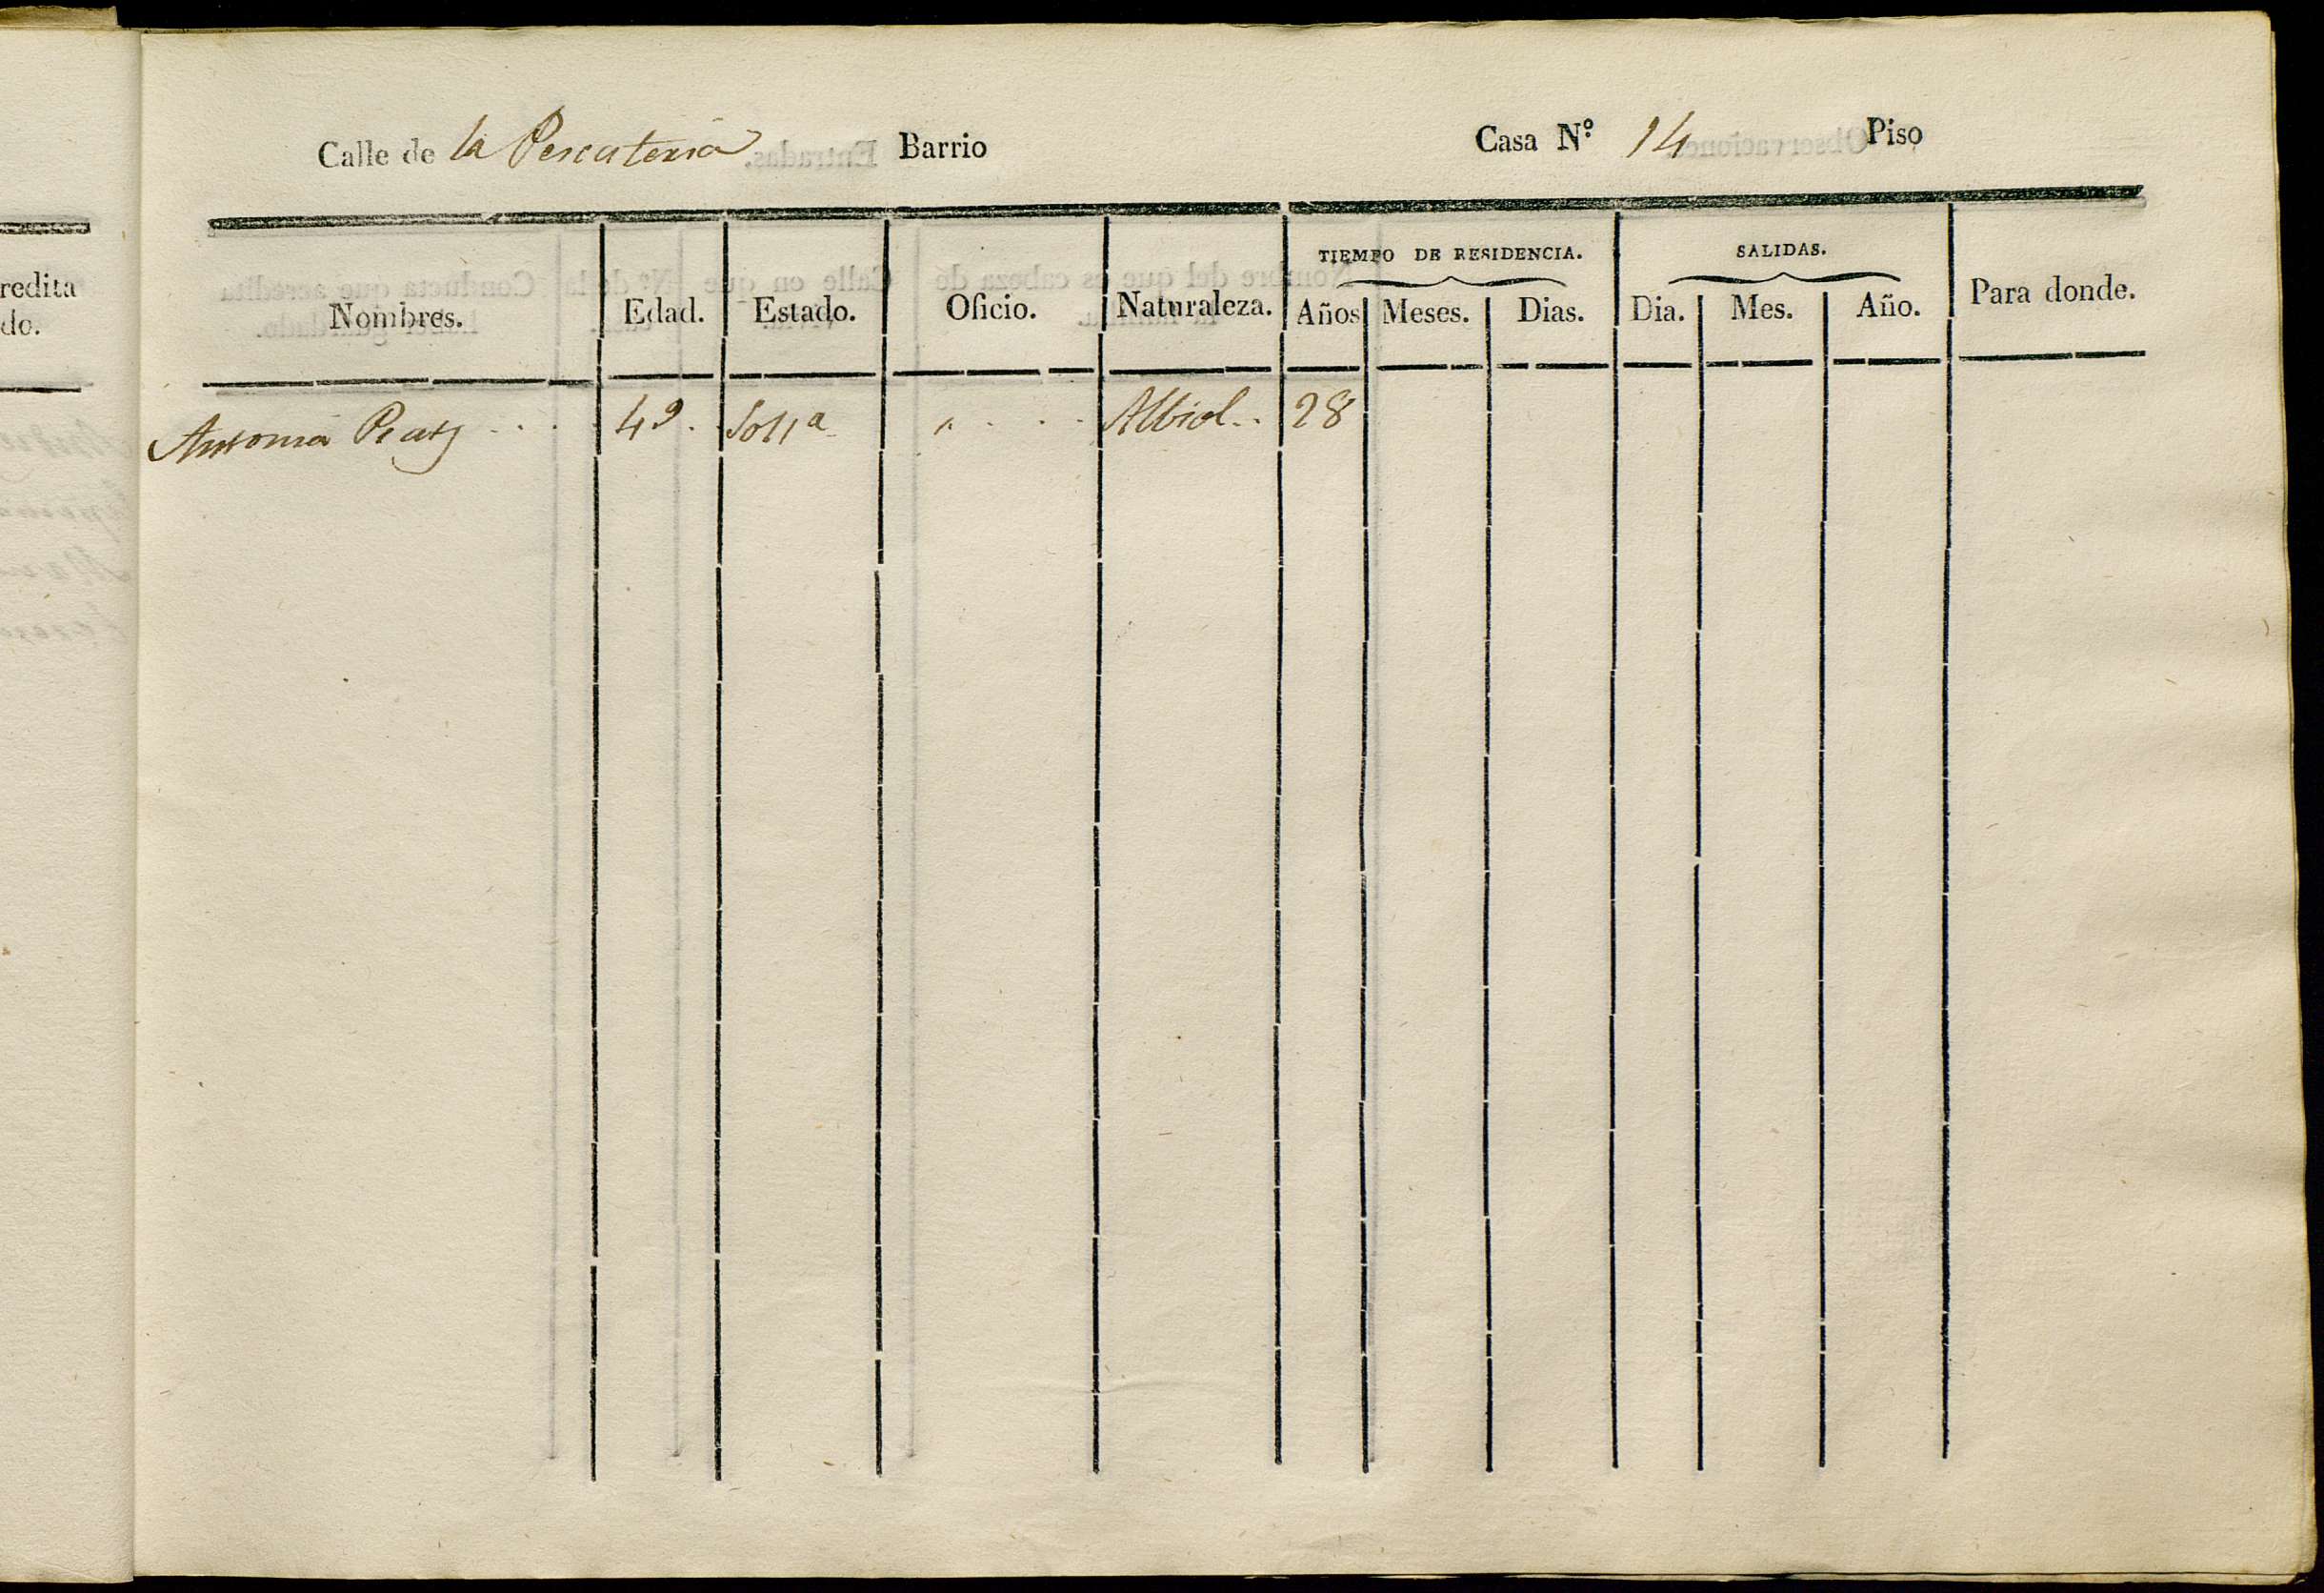 redita
do.
Calle de la Pescateria Barrio Casa Nº 14 Piso
TIEMPO DE RESIDENCIA. SALIDAS.
Nombres. Edad. Estado. Oficio. Naturaleza. Años Meses. Dias. Dia. Mes. Año. Para donde.
Antonia 49. Solt.ª " Albiol 28